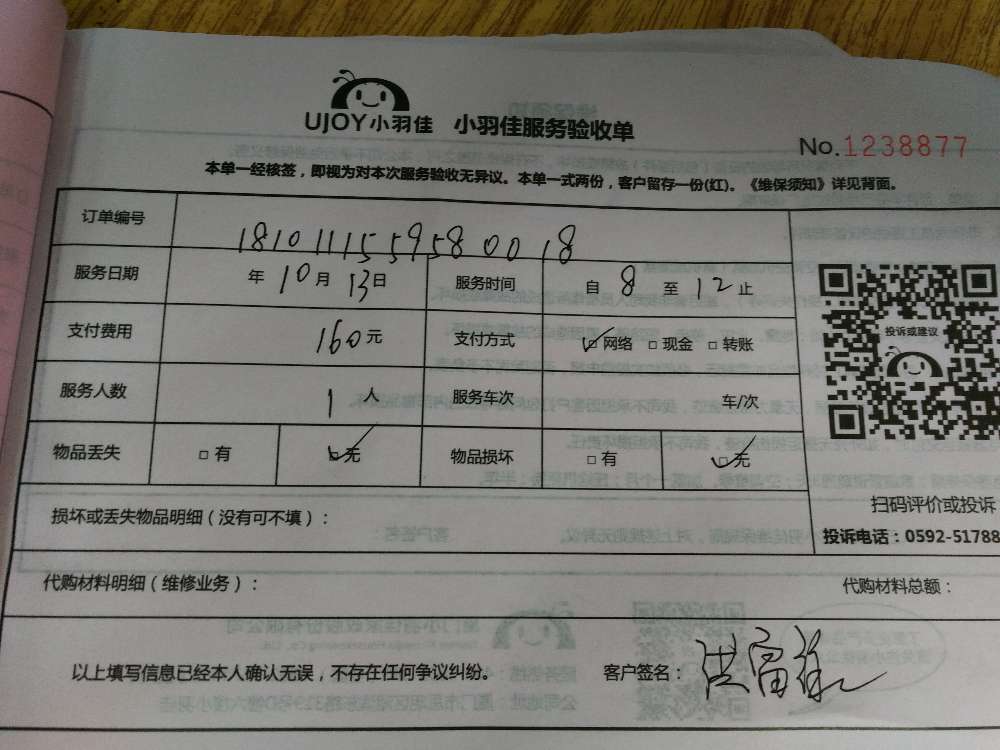 UJOY小羽佳 小羽佳服务验收单
No.1238877
本单一经核签，即视为对本次服务验收无异议。本单一式两份，客户留存一份(红)。《维保须知》详见背面。
订单编号 1810111559580018
服务日期 年10月13日 服务时间 自8至12止
支付费用 160元 支付方式 ☑网络 □现金 □转账
服务人数 1人 服务车次 车/次
投诉或建议
物品丢失 □有 ☑无 物品损坏 □有 ☑无
扫码评价或投诉
损坏或丢失物品明细（没有可不填）：
投诉电话：0592-51788
代购材料明细（维修业务）： 代购材料总额：
以上填写信息已经本人确认无误，不存在任何争议纠纷。 客户签名：洪富